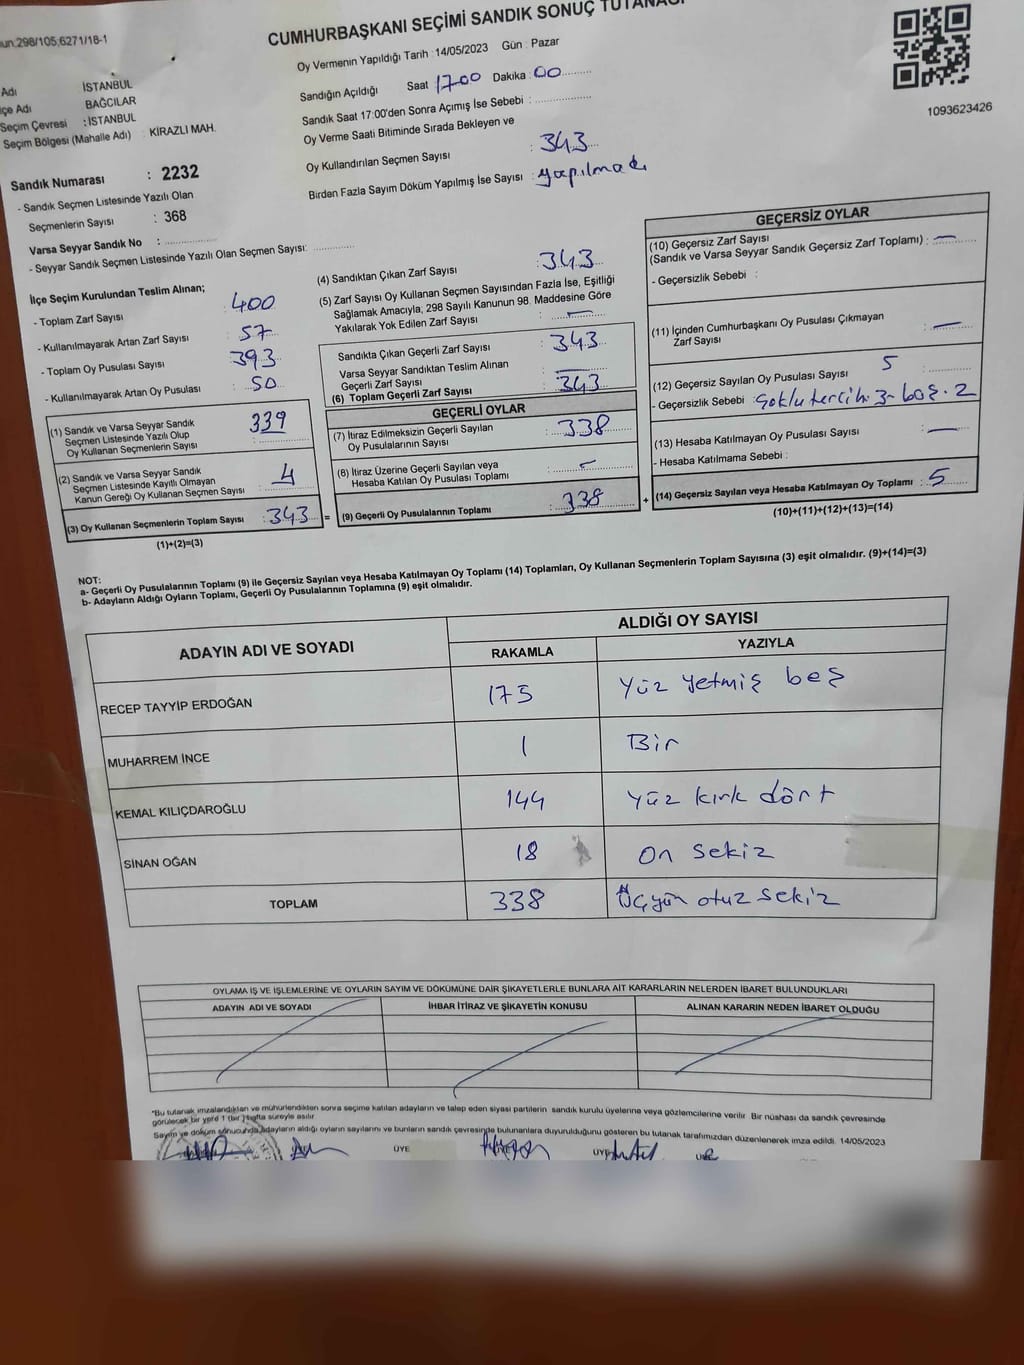 CUMHURBAŞKANI SEÇİMİ SANDIK SONUÇ TUTANAĞI
298/105,6271/18-1
Oy Vermenin Yapıldığı Tarih : 14/05/2023 Gün : Pazar
Adı İSTANBUL
Adı BAĞCILAR
Seçim Çevresi : İSTANBUL
Seçim Bölgesi (Mahalle Adı) : KİRAZLI MAH.
Sandığın Açıldığı Saat 17:00 Dakika : 00
Sandık Saat 17:00'den Sonra Açımış İse Sebebi :
Oy Verme Saati Bitiminde Sırada Bekleyen ve
Oy Kullandırılan Seçmen Sayısı : 343
Birden Fazla Sayım Döküm Yapılmış İse Sayısı : yapılmadı
1093623426
Sandık Numarası : 2232
- Sandık Seçmen Listesinde Yazılı Olan
Seçmenlerin Sayısı : 368
Varsa Seyyar Sandık No :
- Seyyar Sandık Seçmen Listesinde Yazılı Olan Seçmen Sayısı:
İlçe Seçim Kurulundan Teslim Alınan;
- Toplam Zarf Sayısı : 400
- Kullanılmayarak Artan Zarf Sayısı : 57
- Toplam Oy Pusulası Sayısı : 393
- Kullanılmayarak Artan Oy Pusulası : 50
(1) Sandık ve Varsa Seyyar Sandık
Seçmen Listesinde Yazılı Olup
Oy Kullanan Seçmenlerin Sayısı : 339
(2) Sandık ve Varsa Seyyar Sandık
Seçmen Listesinde Kayıtlı Olmayan
Kanun Gereği Oy Kullanan Seçmen Sayısı : 4
(3) Oy Kullanan Seçmenlerin Toplam Sayısı : 343 =
(1)+(2)=(3)
(4) Sandıktan Çıkan Zarf Sayısı : 343
(5) Zarf Sayısı Oy Kullanan Seçmen Sayısından Fazla İse, Eşitliği
Sağlamak Amacıyla, 298 Sayılı Kanunun 98. Maddesine Göre
Yakılarak Yok Edilen Zarf Sayısı : —
Sandıkta Çıkan Geçerli Zarf Sayısı : 343
Varsa Seyyar Sandıktan Teslim Alınan
Geçerli Zarf Sayısı : —
(6) Toplam Geçerli Zarf Sayısı : 343
GEÇERLİ OYLAR
(7) İtiraz Edilmeksizin Geçerli Sayılan
Oy Pusulalarının Sayısı : 338
(8) İtiraz Üzerine Geçerli Sayılan veya
Hesaba Katılan Oy Pusulası Toplamı : —
(9) Geçerli Oy Pusulalarının Toplamı : 338 +
GEÇERSİZ OYLAR
(10) Geçersiz Zarf Sayısı
(Sandık ve Varsa Seyyar Sandık Geçersiz Zarf Toplamı) : —
- Geçersizlik Sebebi :
(11) İçinden Cumhurbaşkanı Oy Pusulası Çıkmayan
Zarf Sayısı : —
(12) Geçersiz Sayılan Oy Pusulası Sayısı : 5
- Geçersizlik Sebebi : Çoklu tercih 3- boş. 2
(13) Hesaba Katılmayan Oy Pusulası Sayısı : —
- Hesaba Katılmama Sebebi :
(14) Geçersiz Sayılan veya Hesaba Katılmayan Oy Toplamı : 5
(10)+(11)+(12)+(13)=(14)
NOT:
a- Geçerli Oy Pusulalarının Toplamı (9) ile Geçersiz Sayılan veya Hesaba Katılmayan Oy Toplamı (14) Toplamları, Oy Kullanan Seçmenlerin Toplam Sayısına (3) eşit olmalıdır. (9)+(14)=(3)
b- Adayların Aldığı Oyların Toplamı, Geçerli Oy Pusulalarının Toplamına (9) eşit olmalıdır.
ADAYIN ADI VE SOYADI ALDIĞI OY SAYISI
RAKAMLA YAZIYLA
RECEP TAYYİP ERDOĞAN 175 Yüz yetmiş beş
MUHARREM İNCE 1 Bir
KEMAL KILIÇDAROĞLU 144 Yüz kırk dört
SİNAN OĞAN 18 On sekiz
TOPLAM 338 Üçyüz otuz sekiz
OYLAMA İŞ VE İŞLEMLERİNE VE OYLARIN SAYIM VE DÖKÜMÜNE DAİR ŞİKAYETLERLE BUNLARA AİT KARARLARIN NELERDEN İBARET BULUNDUKLARI
ADAYIN ADI VE SOYADI İHBAR İTİRAZ VE ŞİKAYETİN KONUSU ALINAN KARARIN NEDEN İBARET OLDUĞU
*Bu tutanak imzalandıktan ve mühürlendikten sonra seçime katılan adayların ve talep eden siyasi partilerin sandık kurulu üyelerine veya gözlemcilerine verilir. Bir nüshası da sandık çevresinde
görülecek bir yere 1 (bir) hafta süreyle asılır.
Sayım ve döküm sonucunda adayların aldığı oyların sayılarını ve bunların sandık çevresinde bulunanlara duyurulduğunu gösteren bu tutanak tarafımızdan düzenlenerek imza edildi. 14/05/2023
ÜYE ÜYE ÜYE